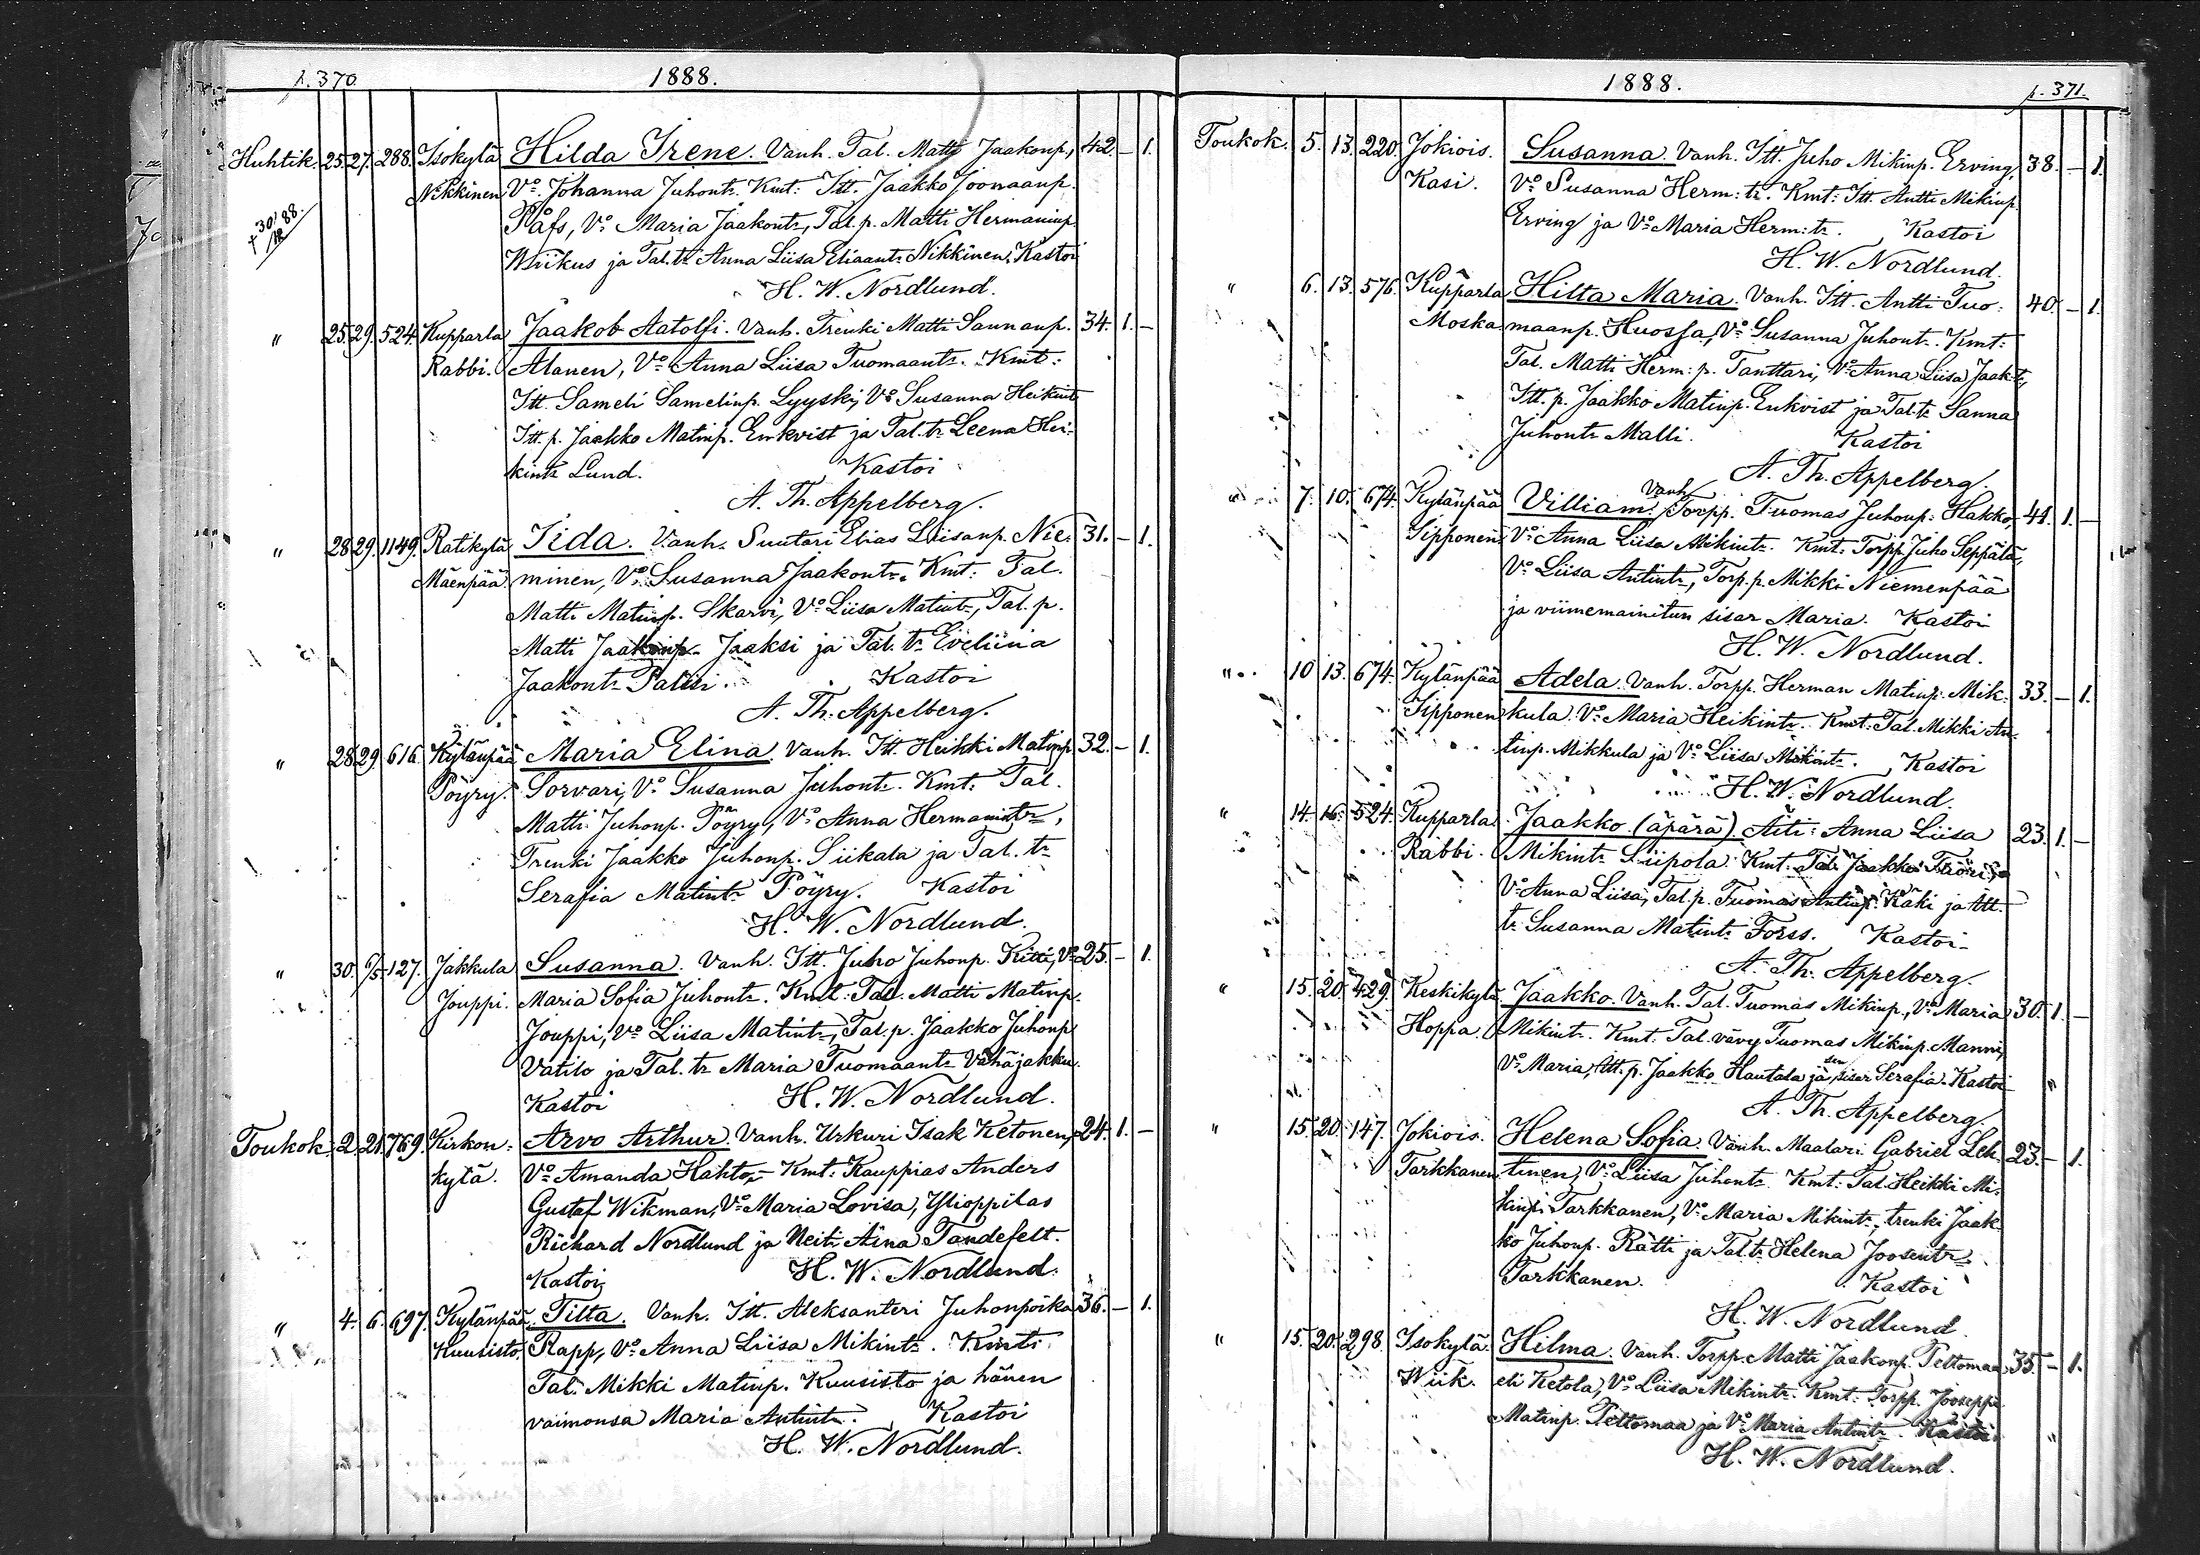 p. 370. 1888.
Huhtik. 25. 27. 288. Isokylä Hilda Irene. Vanh. Tal. Matti Jaakonp., 42. – 1.
Nikkinen Vo. Johanna Juhontr. Kmt: Itt. Jaakko Joonaanp.
+ 30/12 88. Påfs, Vo. Maria Jaakontr, Tal. p. Matti Hermaninp.
Wiikus ja Tal. tr Anna Liisa Eliaantr Nikkinen. Kastoi
H. W. Nordlund.
" 25. 29. 524. Kupparla Jaakob Aatolfi. Vanh. Trenki Matti Sannanp. 34. 1. –
Rabbi. Alanen, Vo. Anna Liisa Tuomaantr. Kmt:
Itt. Sameli Samelinp. Lyyski, Vo Susanna Heikintr
Itt. p. Jaakko Matinp. Enkvist ja Tal. tr Leena Hei-
kintr Lund. Kastoi
A. Th. Appelberg.
" 28. 29. 1149. Ratikylä Iida. Vanh. Suutari Elias Liisanp. Nie- 31. – 1.
Mäenpää minen, Vo. Susanna Jaakontr. Kmt: Tal.
Matti Matinp. Skarvi, Vo Liisa Matintr, Tal. p.
Matti Jaakonp. Jaaksi ja Tal. tr Eveliina
Jaakontr Kastoi
A. Th. Appelberg.
" 28. 29. 616. Kylänpää Maria Elina. Vanh. Itt. Heikki Matinp. 32. – 1.
Pöyry. Sorvari, Vo Susanna Juhontr. Kmt: Tal.
Matti Juhonp. Pöyry, Vo Anna Hermanintr,
Trenki Jaakko Juhonp. Siikala ja Tal. tr
Serafia Matintr Pöyry. Kastoi
H. W. Nordlund.
" 30. 6/5. 127. Jakkula Susanna. Vanh. Itt. Juho Juhonp. Kitti, Vo 25. – 1.
Jouppi. Maria Sofia Juhontr. Kmt: Tal. Matti Matinp.
Jouppi, Vo Liisa Matintr, Tal. p. Jaakko Juhonp.
Vatilo ja Tal. tr Maria Tuomaantr Vähäjakku.
Kastoi H. W. Nordlund.
Toukok. 2. 21. 769. Kirkon- Arvo Arthur. Vanh. Urkuri Isak Ketonen, 24. 1. –
kylä. Vo Amanda Hahto. Kmt: Kauppias Anders
Gustaf Wikman, Vo Maria Lovisa, Ylioppilas
Richard Nordlund ja Neiti Aina Tandefelt.
Kastoi H. W. Nordlund.
" 4. 6. 697. Kylänpää Tilta. Vanh. Itt. Aleksanteri Juhonpoika 36. – 1.
Kuusisto. Rapp, Vo Anna Liisa Mikintr. Kmti
Tal. Mikki Matinp. Kuusisto ja hänen
vaimonsa Maria Antintr. Kastoi
H. W. Nordlund.
1888. p. 371.
Toukok. 5. 13. 220. Jokiois. Susanna. Vanh. Itt. Juho Mikinp. Erving, 38. – 1.
Kasi. Vo Susanna Herm:tr. Kmt: Itt. Antti Mikinp.
Erving ja Vo Maria Herm:tr. Kastoi
H. W. Nordlund.
" 6. 13. 576. Kupparla Hilta Maria. Vanh. Itt. Antti Tuo- 40. – 1.
Moska maanp. Huossa, Vo Susanna Juhontr. Kmt:
Tal. Matti Herm: p. Tanttari, Vo Anna Liisa Jaak:tr,
Itt. p. Jaakko Matinp. Enkvist ja Tal. tr Sanna
Juhontr Malli. Kastoi
A. Th. Appelberg.
" 7. 10. 674. Kylänpää Villiam. Vanh. Torpp. Tuomas Juhonp. Hakko, 41. 1. –
Sipponen Vo Anna Liisa Mikintr. Kmt: Torpp. Juho Seppälä,
Vo Liisa Antintr, Torp. p. Mikki Niemenpää
ja viimemainitun sisar Maria. Kastoi
H. W. Nordlund.
" 10 13. 674. Kylänpää Adela. Vanh. Torpp. Herman Matinp. Mik- 33. – 1.
Sipponen kula. Vo Maria Heikintr. Kmt: Tal. Mikki An-
tinp. Mikkula ja Vo Liisa Mikintr. Kastoi
H. W. Nordlund.
" 14. 16. 524. Kupparla Jaakko (äpärä) Äiti: Anna Liisa 23. 1. –
Rabbi. Mikintr Siipola. Kmt: Tal. Jaakko
Vo Anna Liisa, Tal. p. Tuomas Antinp. Käki ja Itt.
tr Susanna Matintr Forss. Kastoi
A. Th. Appelberg.
" 15. 20. 429. Keskikylä Jaakko. Vanh. Tal. Tuomas Mikinp., Vo Maria 30. 1. –
Hoppa. Mikintr. Kmt: Tal. vävy Tuomas Mikinp. Manni,
Vo Maria, Itt. p. Jaakko Hautala ja sen sisar Serafia. Kastoi
A. Th. Appelberg.
" 15. 20. 147. Jokiois. Helena Sofia. Vanh. Maalari Gabriel Leh- 23. – 1.
Tarkkanen tinen, Vo Liisa Juhontr. Kmt: Tal. Heikki Mi-
kinp. Tarkkanen, Vo Maria Mikintr, trenki Jaak-
ko Juhonp. Rätti ja Tal. tr Helena Joosentr
Tarkkanen. Kastoi
H. W. Nordlund.
" 15. 20. 298. Isokylä Hilma. Vanh. Torpp. Matti Jaakonp. Pettomaa 35. – 1.
Wiik. eli Ketola, Vo Liisa Mikintr. Kmt: Torpp. Jooseppi
Matinp. Pettomaa ja Vo Maria Antintr. Kastoi
H. W. Nordlund.